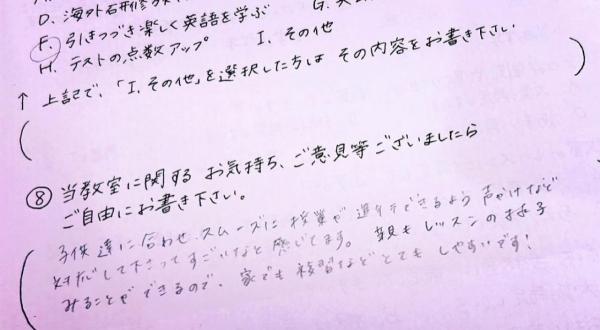 D. 海外研修
F. 引きつづき楽しく英語を学ぶ G.
H. テストの点数アップ I. その他
↑ 上記で、「I. その他」を選択した方は その内容をお書き下さい
( )
⑧ 当教室に関する お気持ち、ご意見等ございましたら
ご自由にお書き下さい。
子供達に合わせ、スムーズに授業が進行できるよう声かけなど
対応して下さってすごいなと感じてます。 親もレッスンの様子
みることができるので、家でも複習などとてもしやすいです!